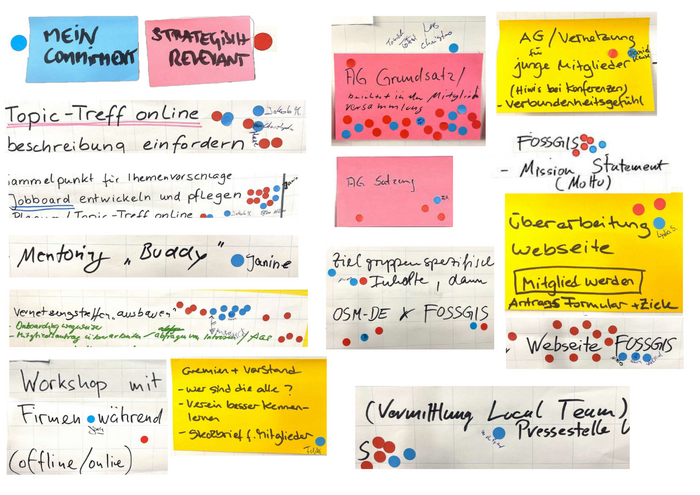 MEIN
COMMITMENT
STRATEGISCH
RELEVANT
Topic-Treff online
beschreibung einfordern
Sammelpunkt für Themenvorschläge
Jobboard entwickeln und pflegen
Topic-Treff online
Mentoring "Buddy"
Janine
Vernetzungstreffen "ausbauen"
- Onboarding
- Mitgliedsantrag
Workshop mit
Firmen während
(offline/online)
Gremien + Vorstand
- wer sind die alle?
- Verein besser kennen-
lernen
- Steckbrief f. Mitglieder
AG Grundsatz/
AG Satzung
Zielgruppenspezifisch
Inhalte, dann
OSM-DE x FOSSGIS
AG/Vernetzung
für
junge Mitglieder
(Hiwis bei Konferenzen)
- Verbundenheitsgefühl
FOSSGIS
- Mission Statement
(Motto)
Überarbeitung
Webseite
Mitglied werden
Antrags Formular + Ziele
Webseite FOSSGIS
(Vermittlung Local Team)
Pressestelle